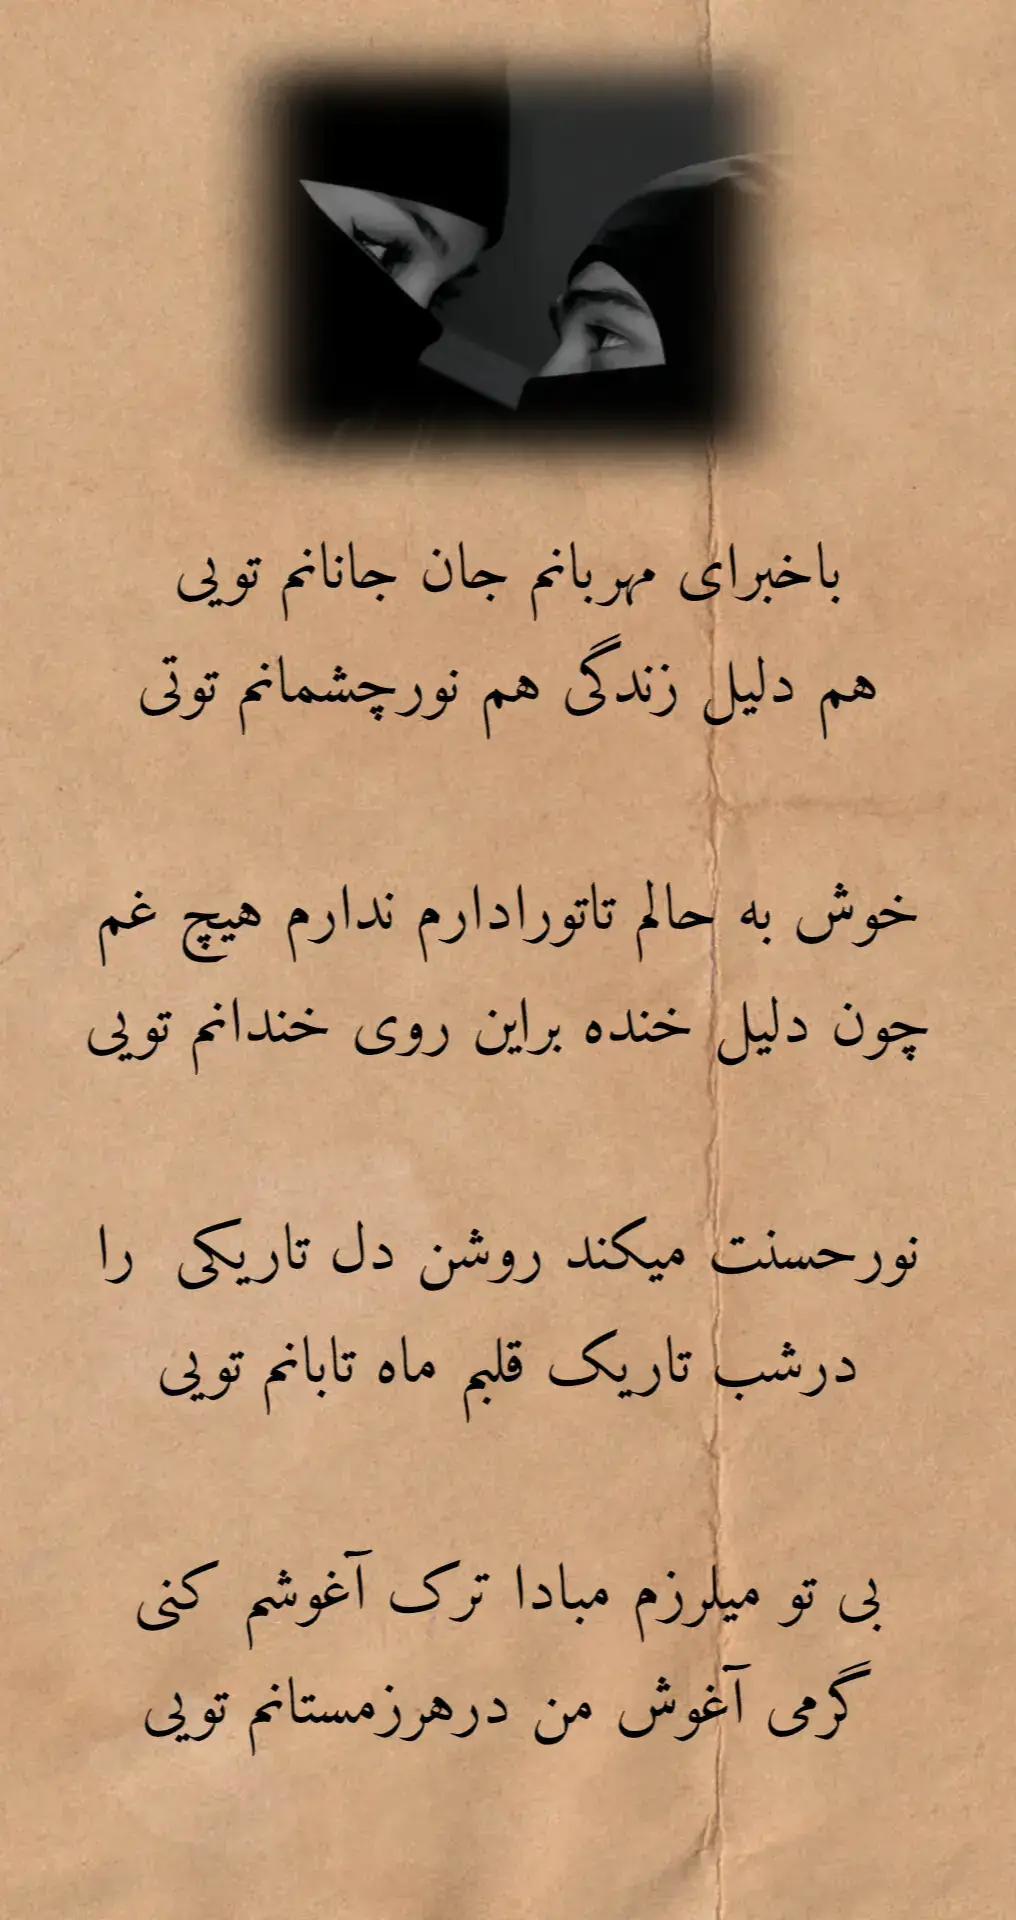 باخبرای مهربانم جان جانانم تویی
هم دلیل زندگی هم نورچشمانم توتی
خوش به حالم تاتورادارم ندارم هیچ غم
چون دلیل خنده براین روی خندانم تویی
نورحسنت میکند روشن دل تاریکی را
درشب تاریک قلبم ماه تابانم تویی
بی تو میلرزم مبادا ترک آغوشم کنی
گرمی آغوش من درهرزمستانم تویی